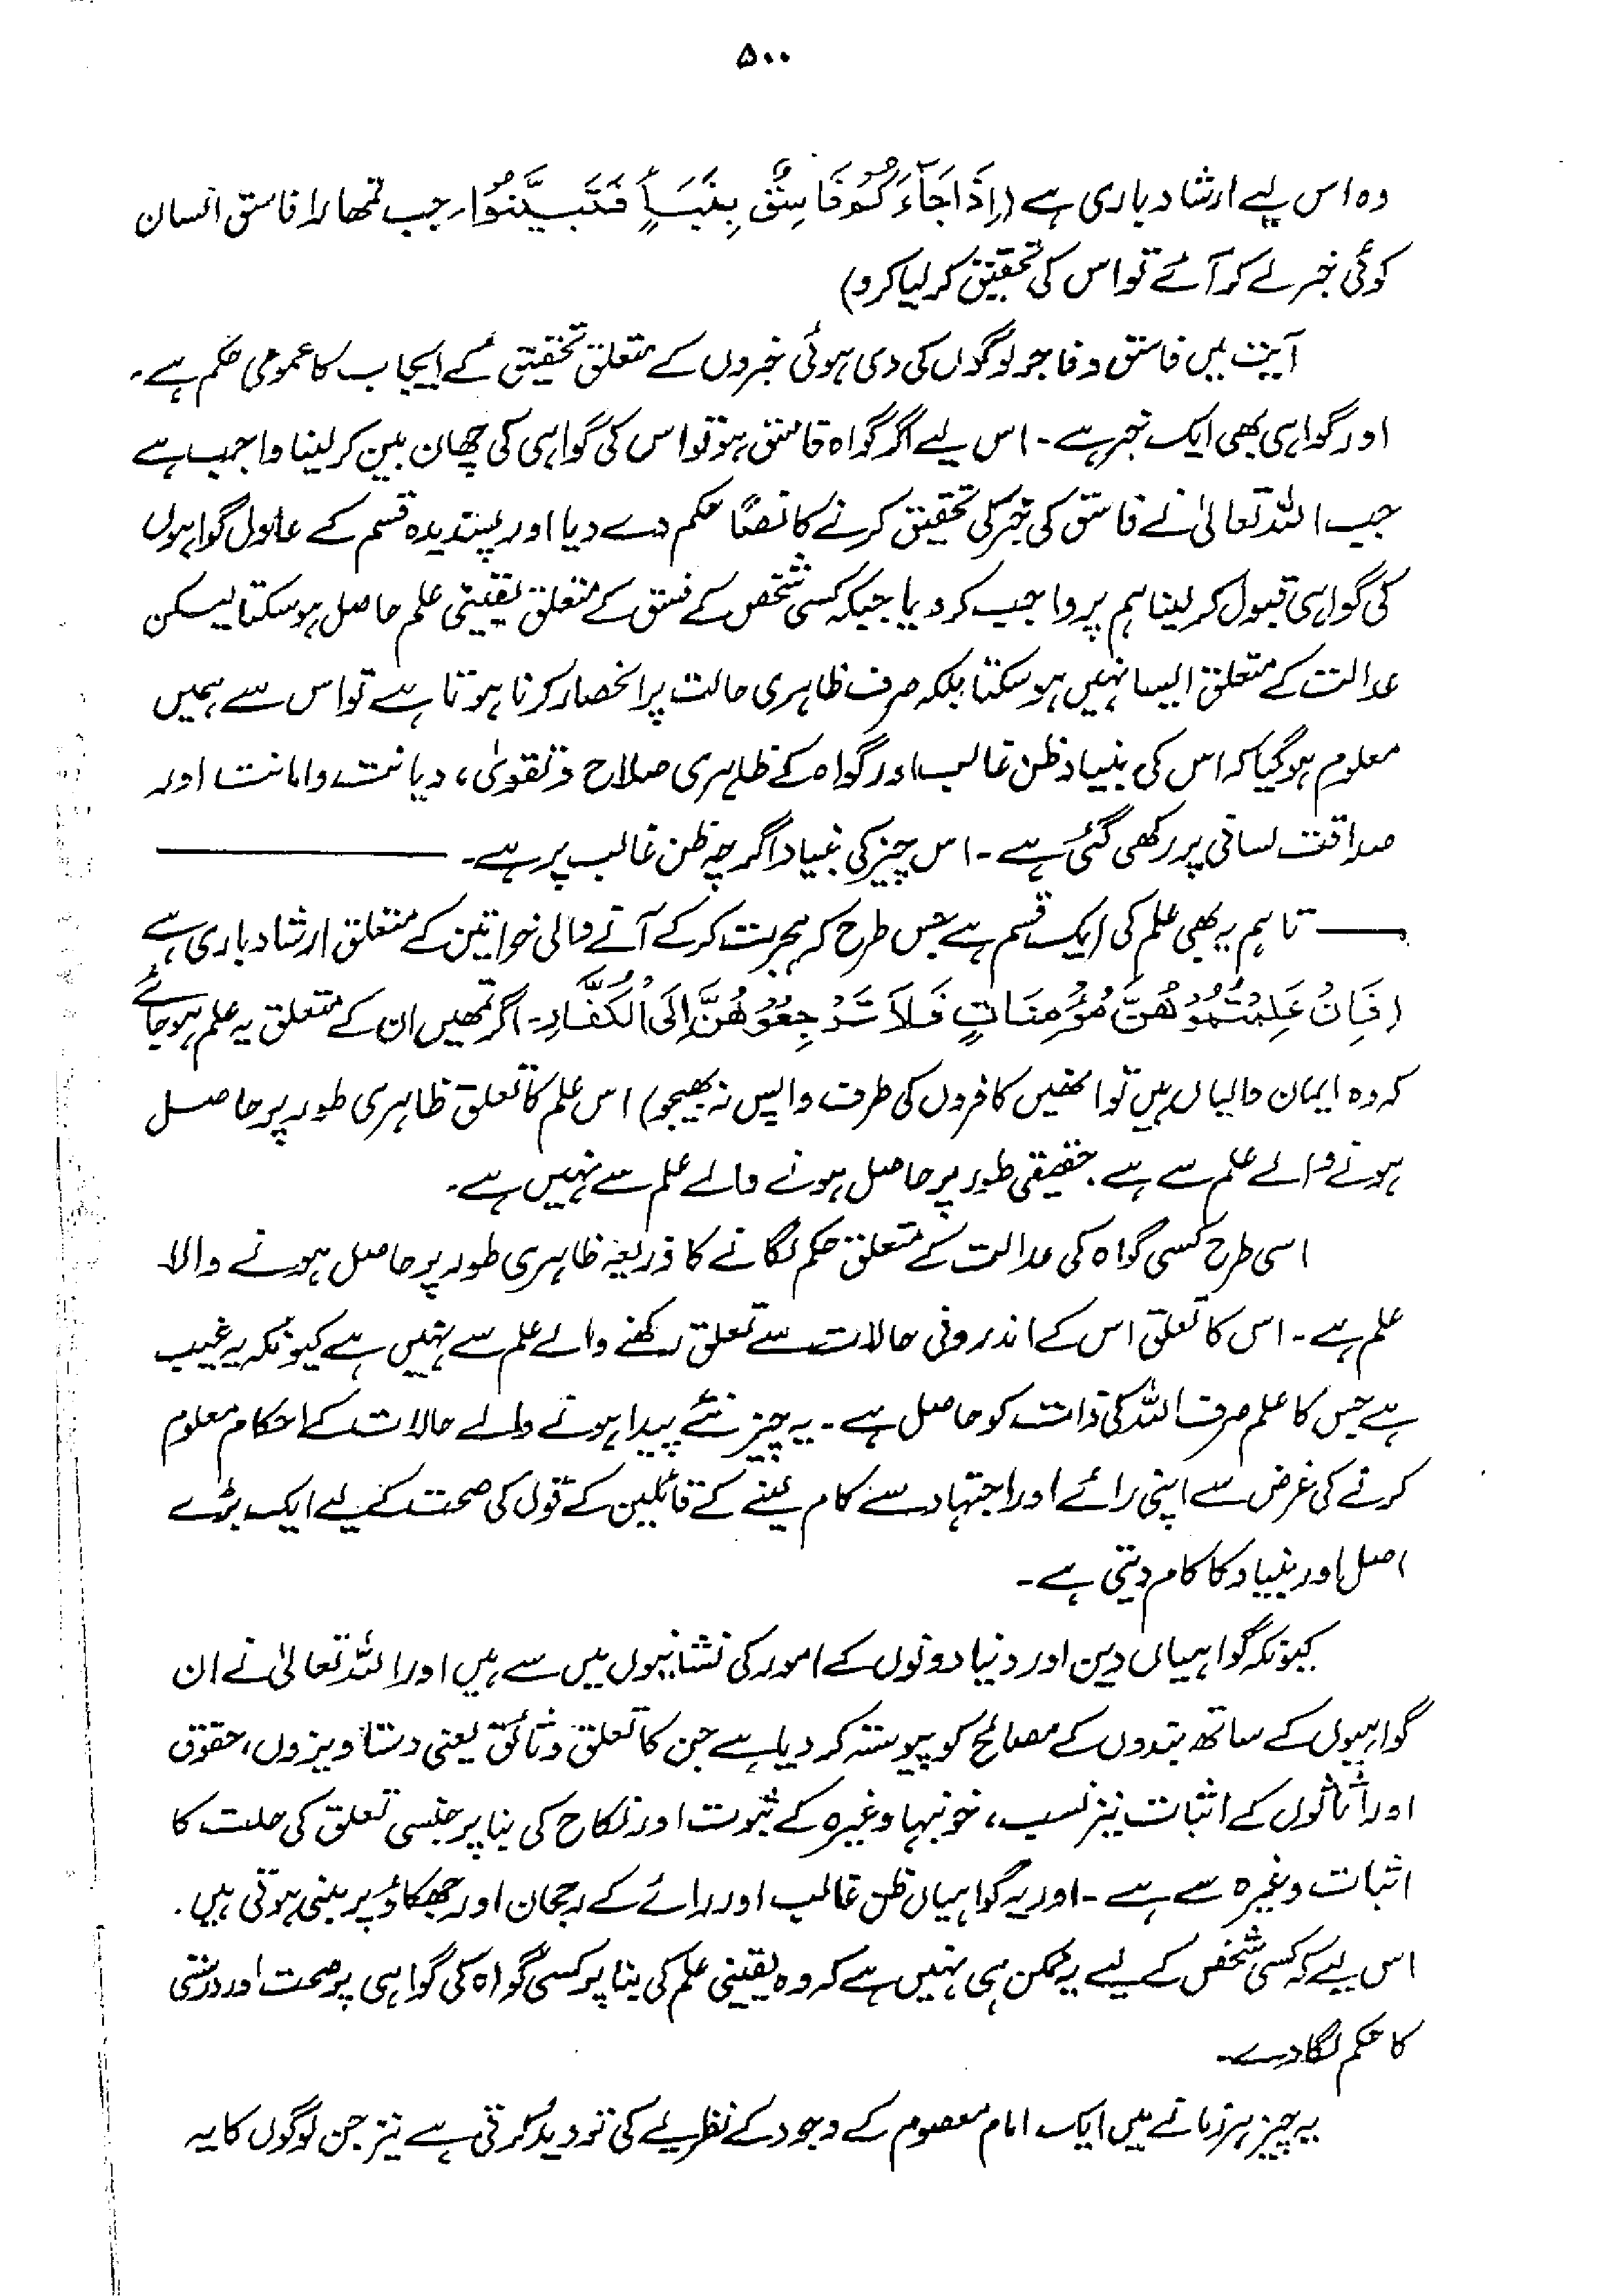 ۵۰۰
وہ اس لیے ارشاد باری ہے (اِذَا جَآءَ كُمْ فَاسِقٌ بِنَبَـأٍ فَتَبَـيَّنُوْا۔ جب تمھارا فاسق انسان
کوئی خبر لے کر آئے تو اس کی تحقیق کر لیا کرو)
آیت میں فاسق و فاجر لوگوں کی دی ہوئی خبروں کے متعلق تحقیق کے ایجاب کا عمومی حکم ہے۔
اور گواہی بھی ایک خبر ہے۔ اس لیے اگر گواہ فاسق ہو تو اس کی گواہی کی چھان بین کر لینا واجب ہے
جب اللہ تعالیٰ نے فاسق کی خبر کی تحقیق کرنے کا نصًا حکم دے دیا اور پسندیدہ قسم کے عادل گواہوں
کی گواہی قبول کر لینا ہم پر واجب کر دیا جبکہ کسی شخص کے فسق کے متعلق یقینی علم حاصل ہو سکتا لیکن
عدالت کے متعلق ایسا نہیں ہو سکتا بلکہ صرف ظاہری حالت پر انحصار کرنا ہوتا ہے تو اس سے ہمیں
معلوم ہو گیا کہ اس کی بنیاد ظن غالب اور گواہ کے ظاہری صلاح و تقویٰ، دیانت و امانت اور
صداقت لسانی پر رکھی گئی ہے۔ اس چیز کی بنیاد اگرچہ ظن غالب پر ہے۔ ————
—— تاہم یہ بھی علم کی ایک قسم ہے جس طرح کہ ہجرت کر کے آنے والی خواتین کے متعلق ارشاد باری ہے
(فَاِنْ عَلِمْتُمُوْهُنَّ مُؤْمِنَاتٍ فَلَا تَرْجِعُوْهُنَّ اِلَى الْكُفَّارِ۔ اگر تمھیں ان کے متعلق یہ علم ہو جائے
کہ وہ ایمان والیاں ہیں تو انھیں کافروں کی طرف واپس نہ بھیجو) اس علم کا تعلق ظاہری طور پر حاصل
ہونے والے علم سے ہے۔ حقیقی طور پر حاصل ہونے والے علم سے نہیں ہے۔
اسی طرح کسی گواہ کی عدالت کے متعلق حکم لگانے کا ذریعہ ظاہری طور پر حاصل ہونے والا
علم ہے۔ اس کا تعلق اس کے اندرونی حالات سے تعلق رکھنے والے علم سے نہیں ہے کیونکہ یہ غیب
ہے جس کا علم صرف اللہ کی ذات کو حاصل ہے۔ یہ چیز نئے پیدا ہونے والے حالات کے احکام معلوم
کرنے کی غرض سے اپنی رائے اور اجتہاد سے کام لینے کے قائلین کے قول کی صحت کے لیے ایک بڑے
اصل اور بنیاد کا کام دیتی ہے۔
کیونکہ گواہیاں دین اور دنیا دونوں کے امور کی نشانیوں میں سے ہیں اور اللہ تعالیٰ نے ان
گواہیوں کے ساتھ بندوں کے مصالح کو پیوستہ کر دیا ہے جن کا تعلق وثائق یعنی دستاویزوں، حقوق
اور اثاثوں کے اثبات نیز نسب، خونبہا وغیرہ کے ثبوت اور نکاح کی بنا پر جنسی تعلق کی حلت کا
اثبات وغیرہ سے ہے۔ اور یہ گواہیاں ظن غالب اور رائے کے رجحان اور جھکاؤ پر مبنی ہوتی ہیں۔
اس لیے کہ کسی شخص کے لیے یہ ممکن ہی نہیں ہے کہ وہ یقینی علم کی بنا پر کسی گواہ کی گواہی پر صحت اور درستی
کا حکم لگا دے۔
یہ چیز ہر زمانے میں ایک امام معصوم کے وجود کے نظریے کی تردید کرتی ہے نیز جن لوگوں کا یہ